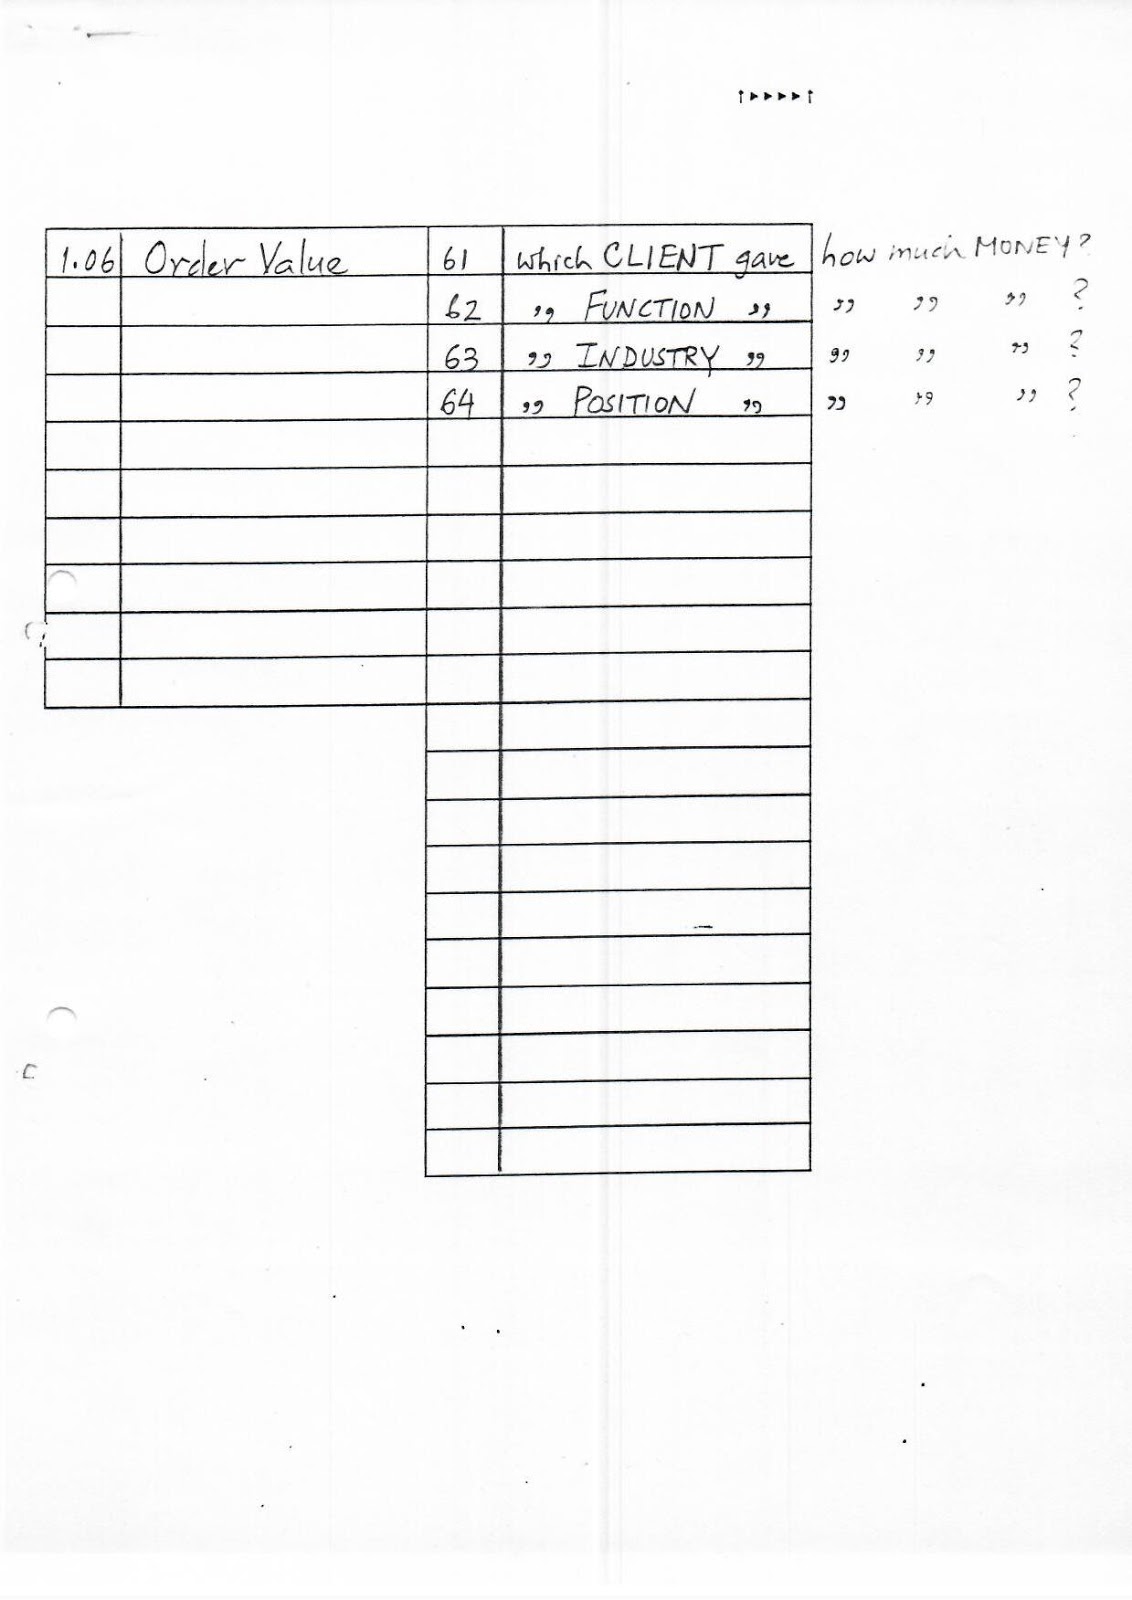 1.06 Order Value 61 which CLIENT gave how much MONEY?
62 ,, FUNCTION ,, ,, ,, ,, ?
63 ,, INDUSTRY ,, ,, ,, ,, ?
64 ,, POSITION ,, ,, ,, ,, ?